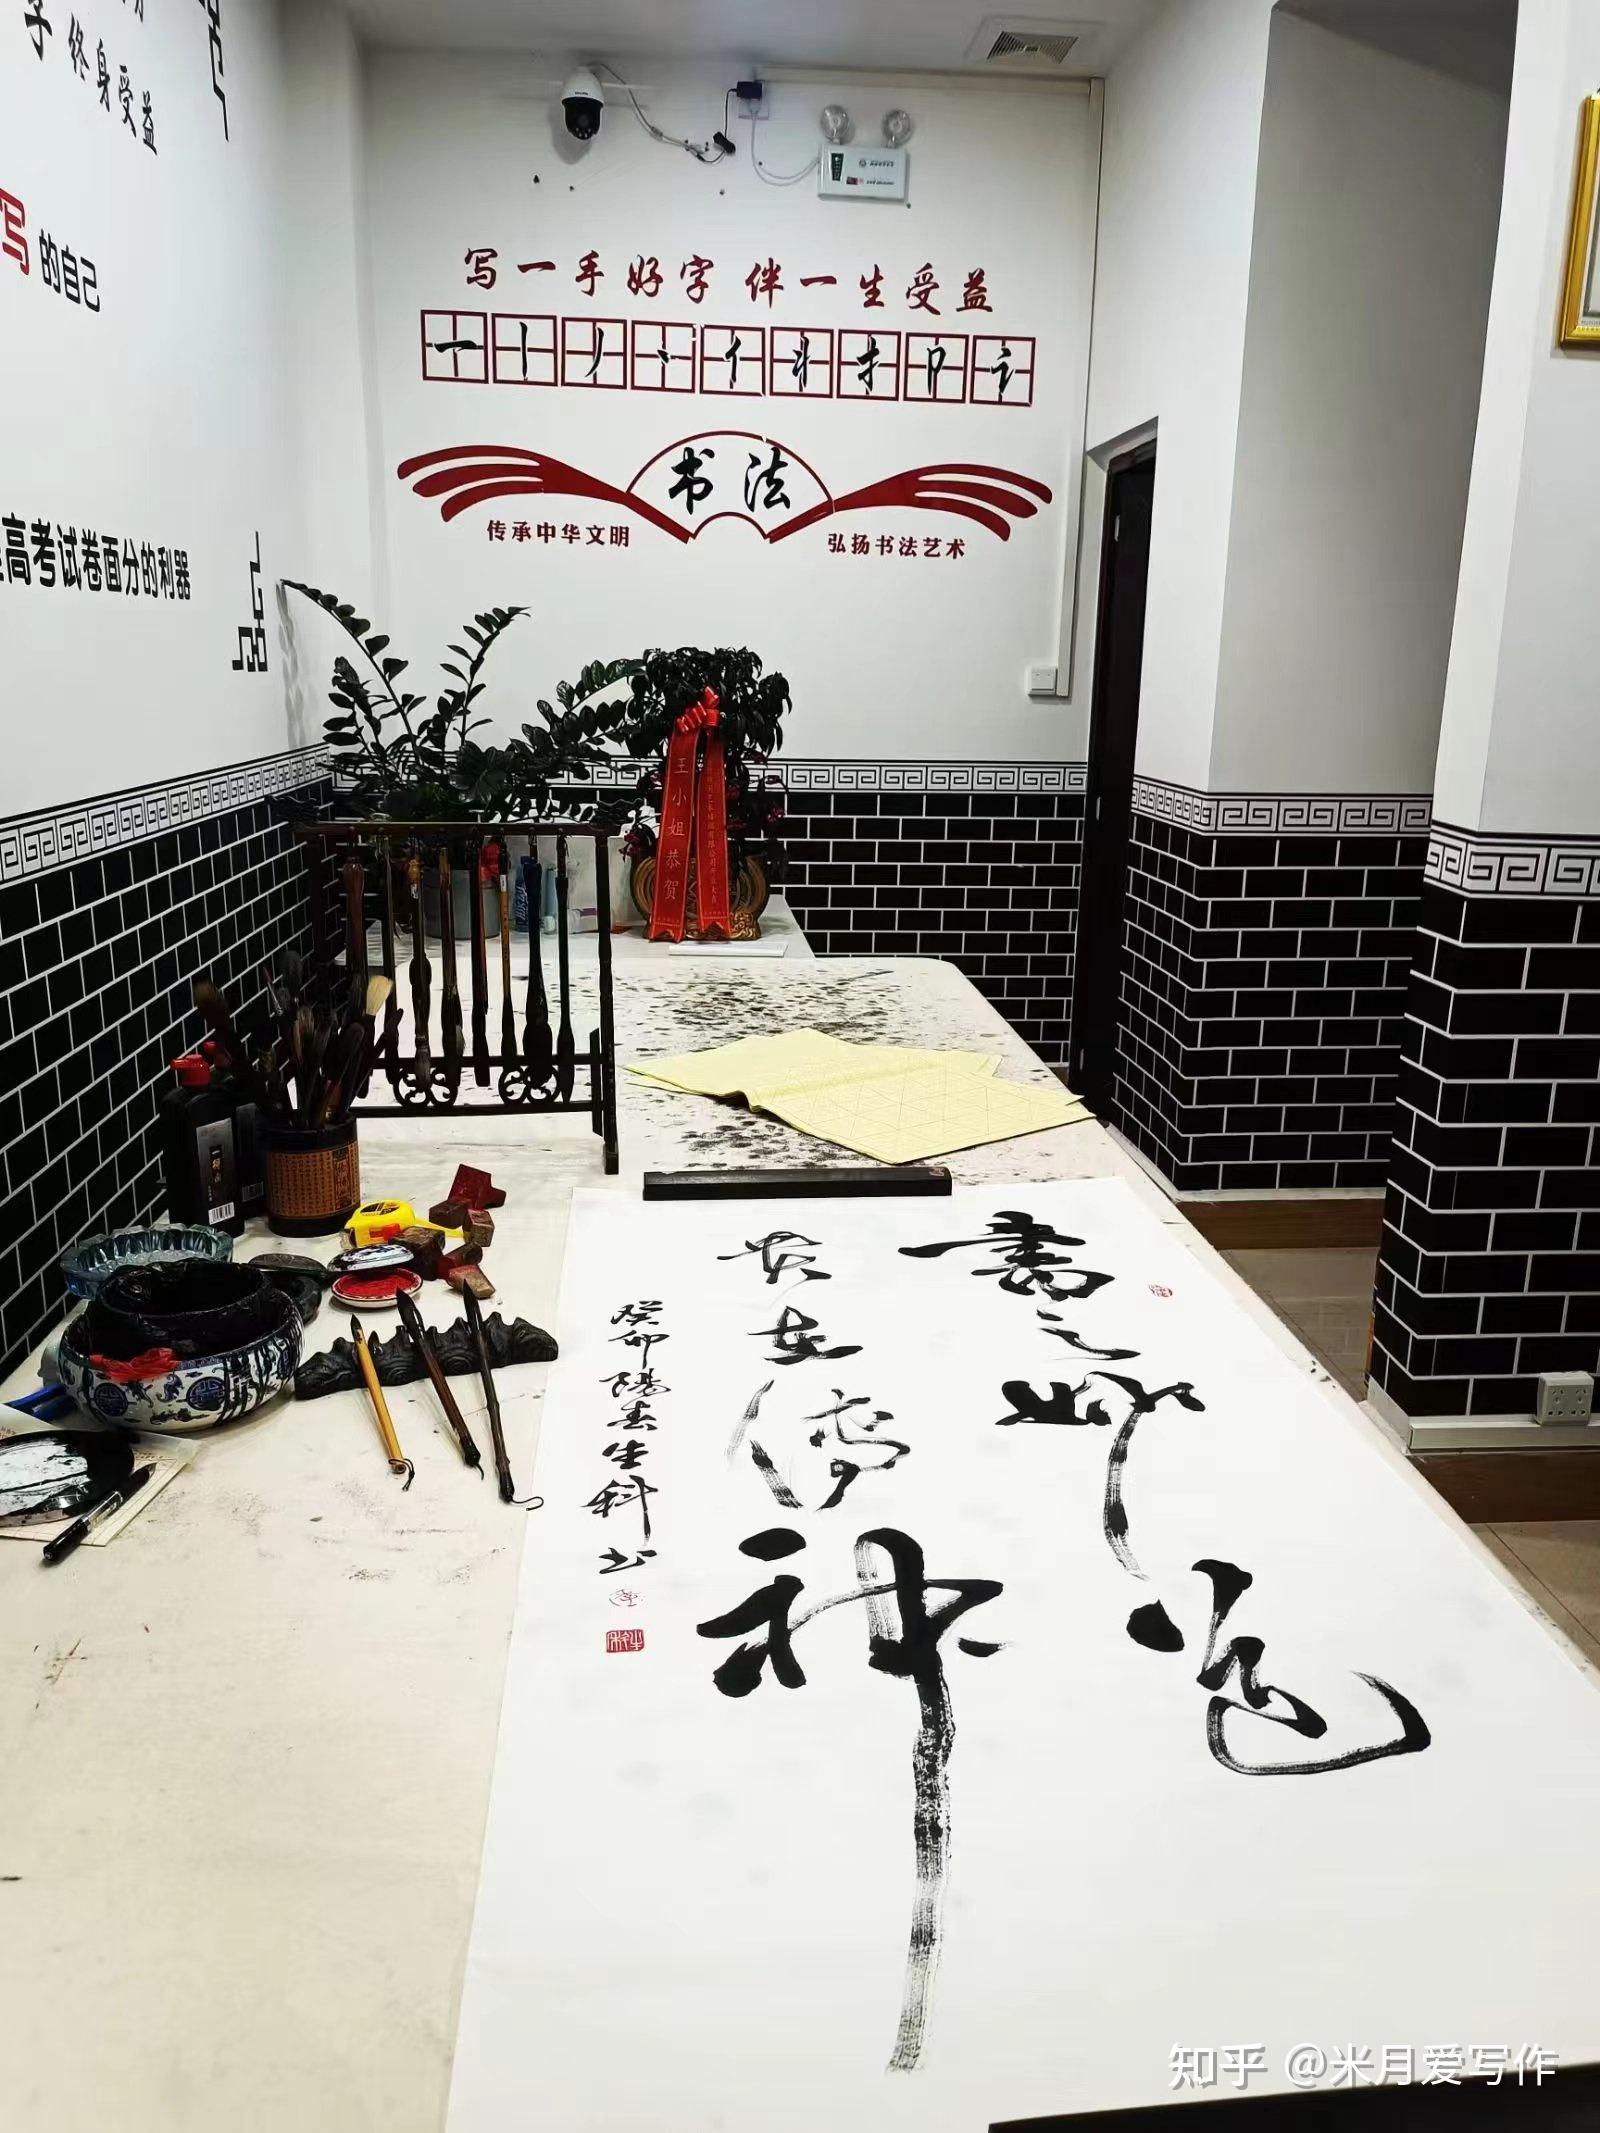 终身受益
写的自己
高考试卷面分的利器
写一手好字 伴一生受益
书法
传承中华文明
弘扬书法艺术
王小姐恭贺
書之妙道
贵在傳神
癸卯陽春生科书
知乎 @米月爱写作